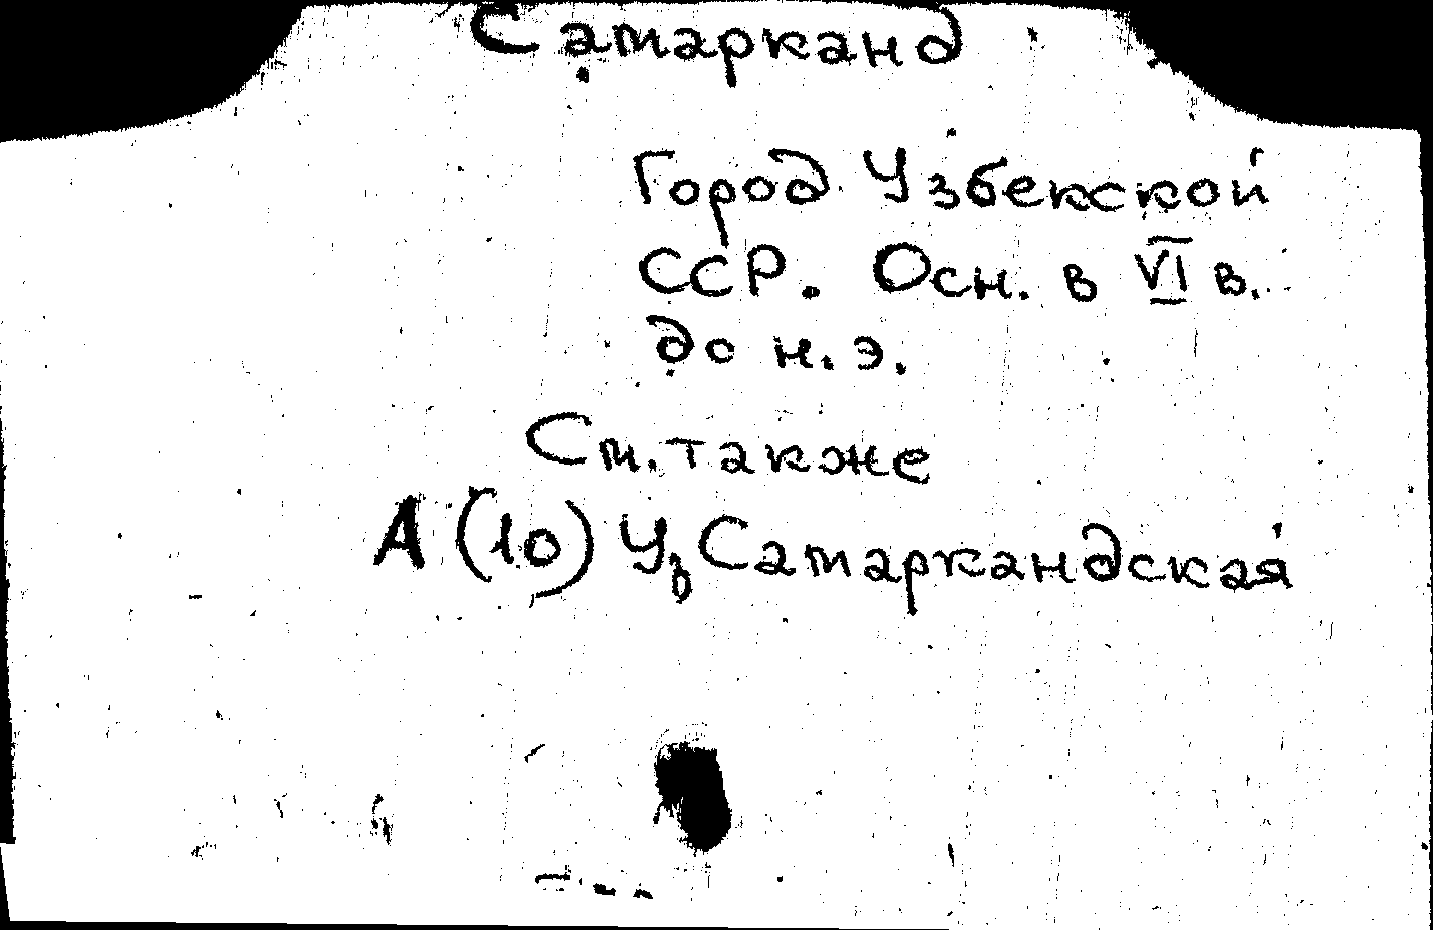 Самарканд
Город Узбекской
ССР. Осн. в VI в.
до н.э.
См. также
А (10) Уз Самаркандская